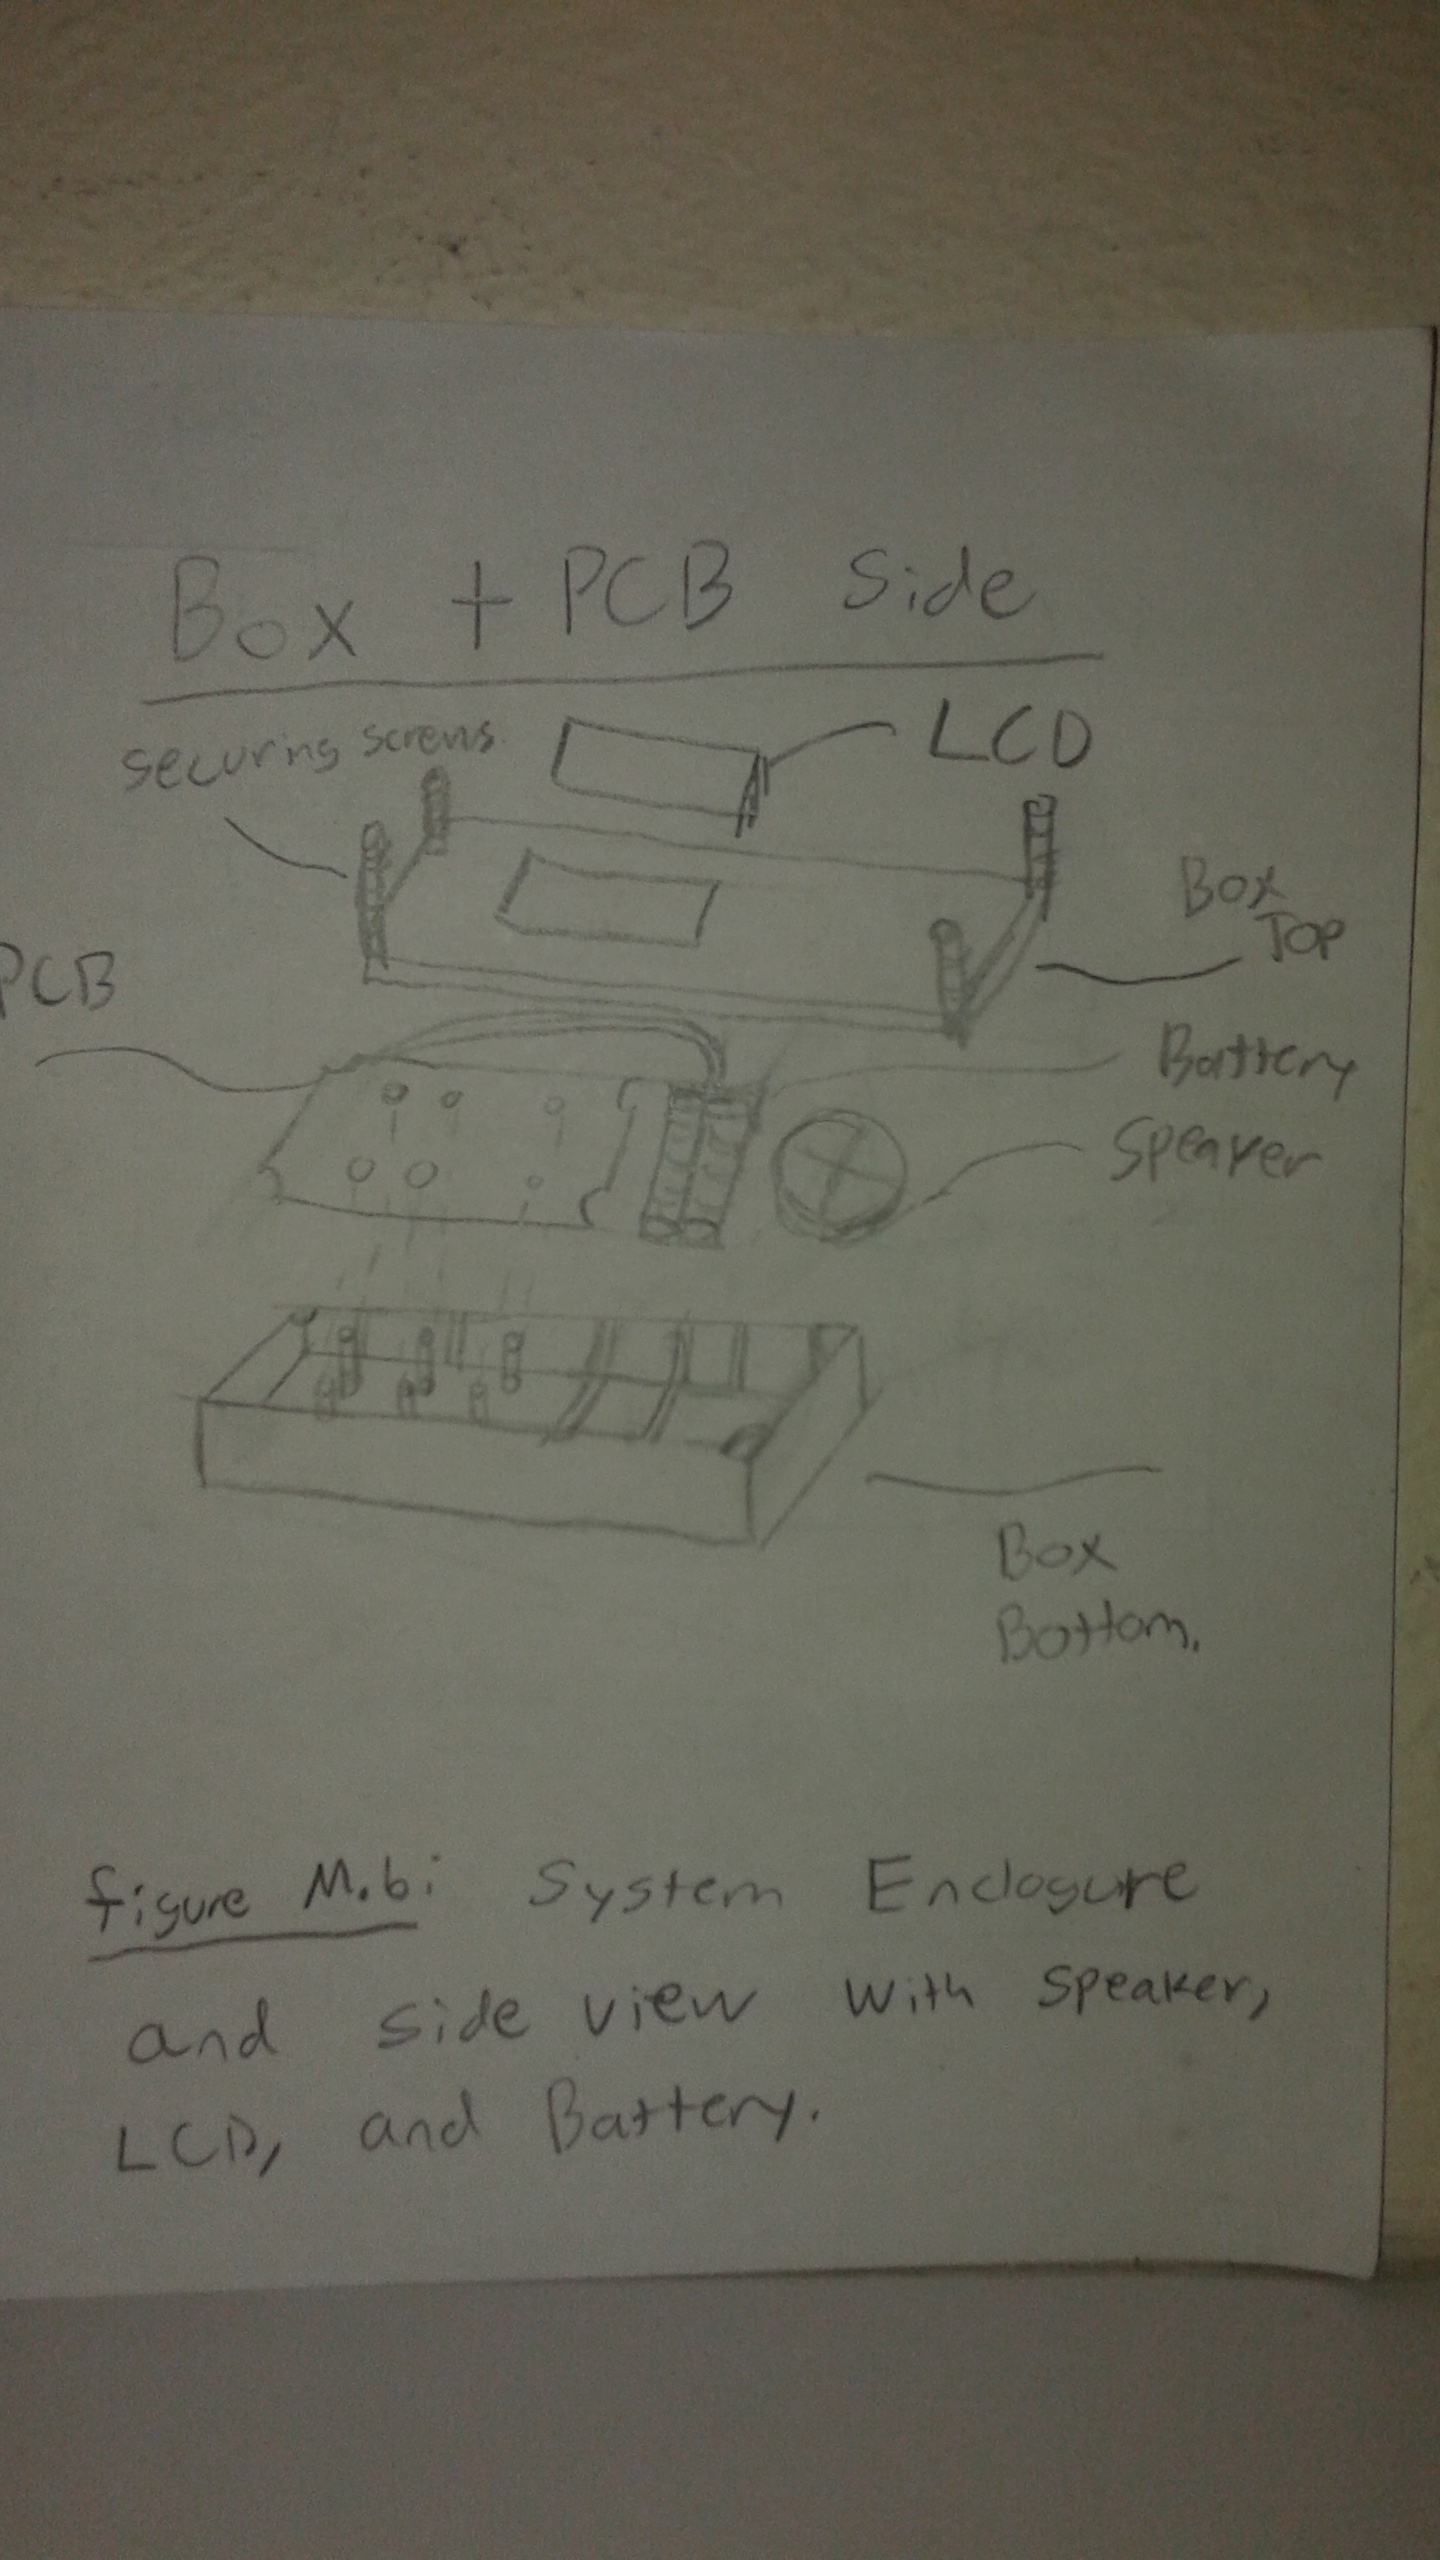 Box + PCB Side
securing screws.
LCD
Box
Top
PCB
Battery
Speaker
Box
Bottom.
figure M.6: System Enclosure
and side view with speaker,
LCD, and Battery.